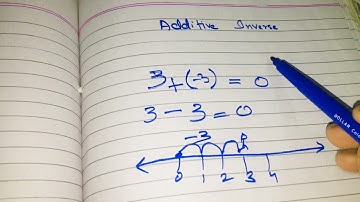 Additive Inverse
3+(-3) = 0
3 - 3 = 0
-3
0 1 2 3 4
DOLLAR